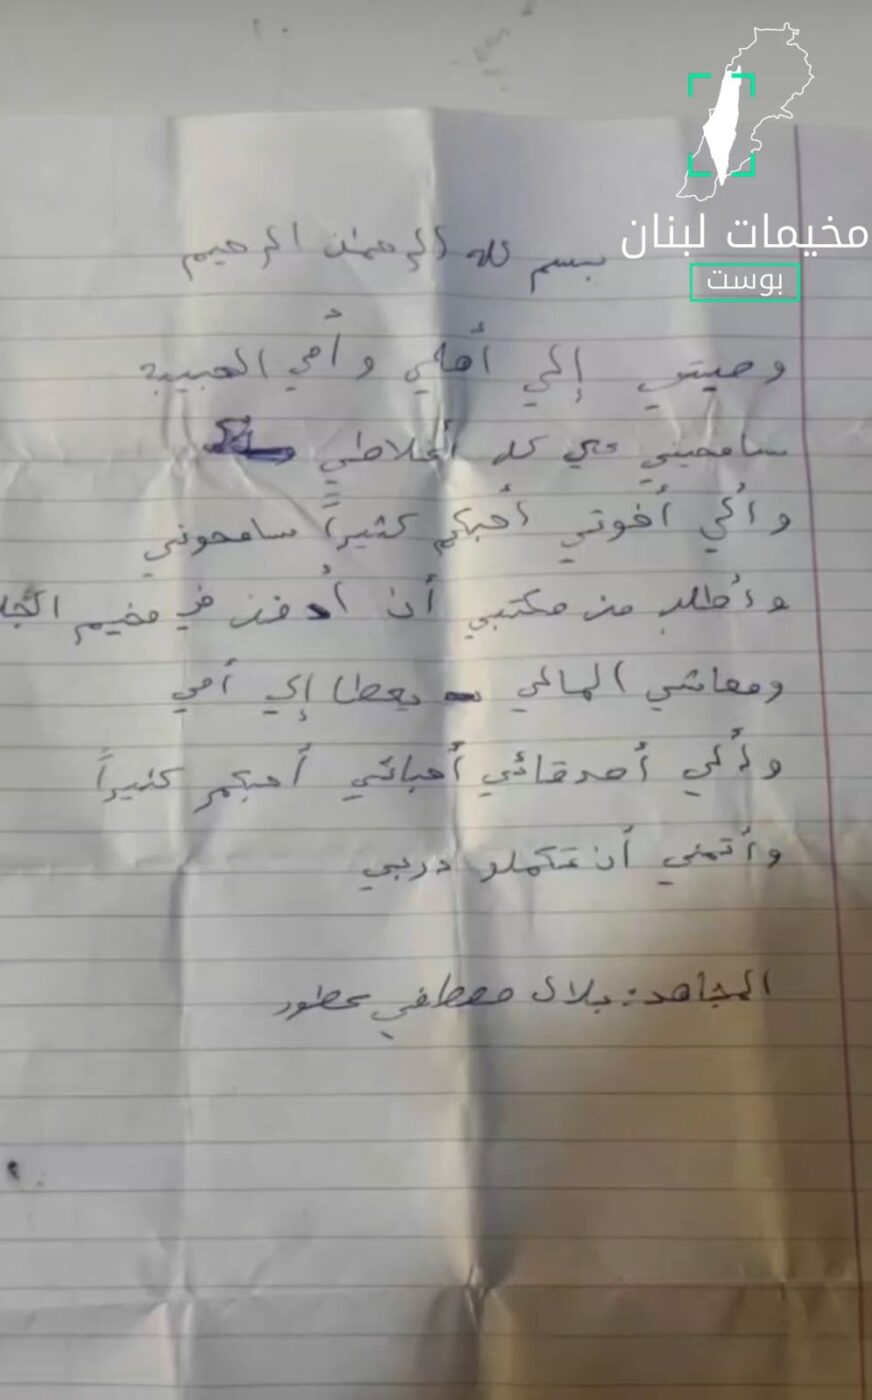 مخيمات لبنان
بوست
بسم لله الرحمان الرحيم
وصيتي إلي أهلي وأمي الحبيبة
سامحيني علي كل أغلاطي
وألي أخوتي أحبكم كثيراً سامحوني
وأطلب من مكتبي أن أدفن في مخيم
ومعاشي المالي يعطا إلي أمي
وألي أصدقائي أحبائي أحبكم كثيراً
وأتمني أن تكملو دربي
المجاهد: بلال مصطفي